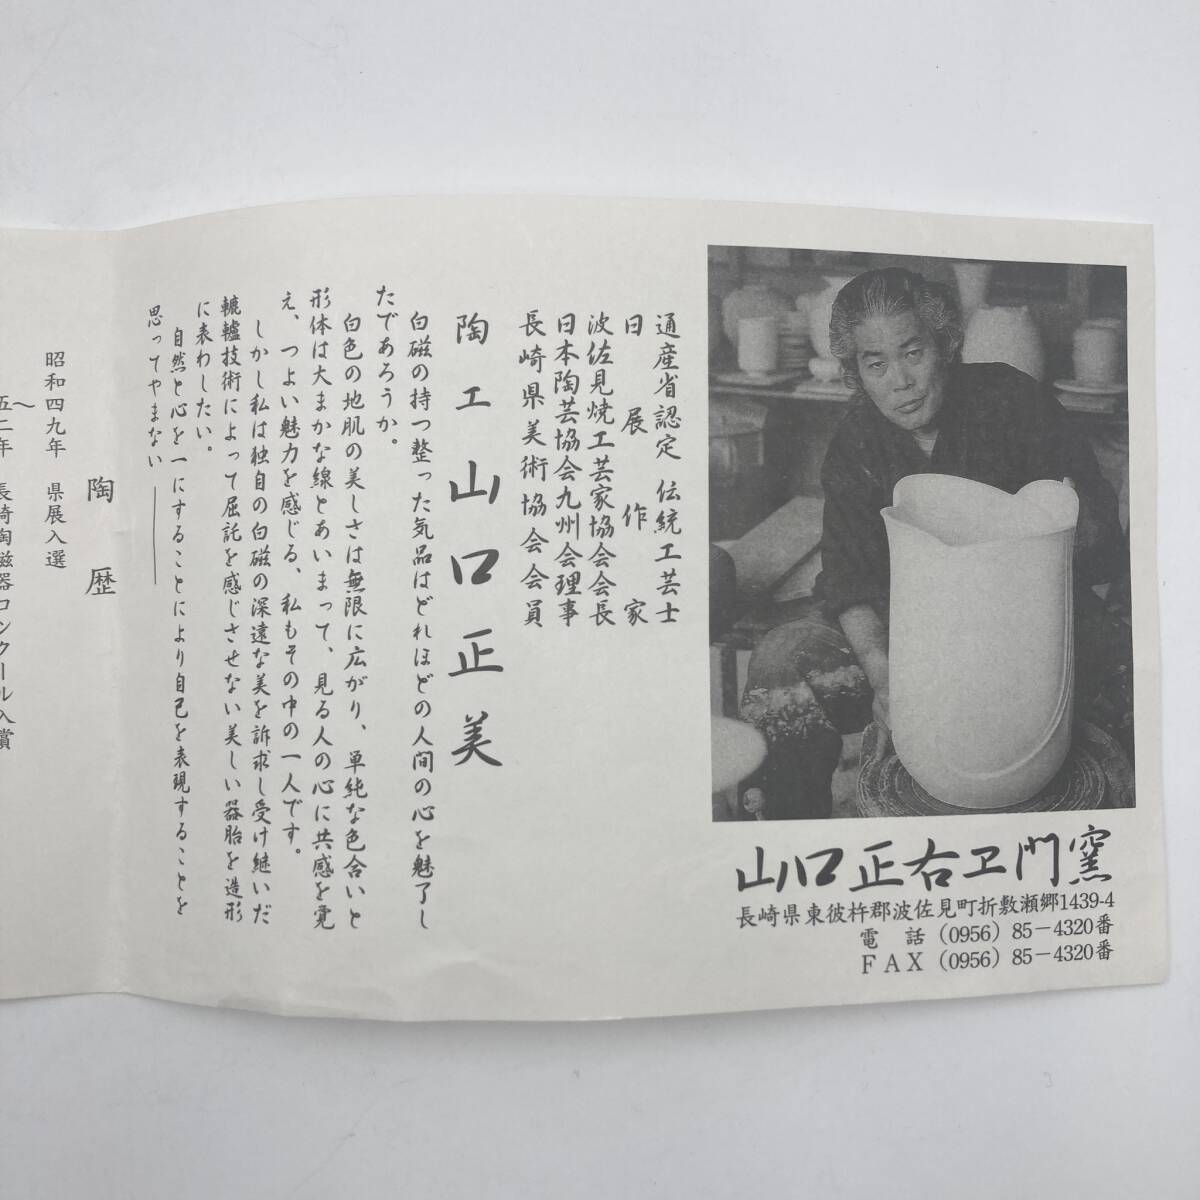 山口正右ヱ門窯
長崎県東彼杵郡波佐見町折敷瀬郷1439-4
電話 (0956) 85－4320番
FAX (0956) 85－4320番
通産省認定 伝統工芸士
日展作家
波佐見焼工芸家協会会長
日本陶芸協会九州会理事
長崎県美術協会会員
陶工 山口正美
白磁の持つ整った気品はどれほどの人間の心を魅了し
たであろうか。
白色の地肌の美しさは無限に広がり、単純な色合いと
形体は大まかな線とあいまって、見る人の心に共感を覚
え、つよい魅力を感じる、私もその中の一人です。
しかし私は独自の白磁の深遠な美を訴求し受け継いだ
轆轤技術によって屈託を感じさせない美しい器胎を造形
に表わしたい。
自然と心を一にすることにより自己を表現することを
思ってやまない――
陶歴
昭和四九年 県展入選
～
五二年 長崎陶磁器コンクール入賞